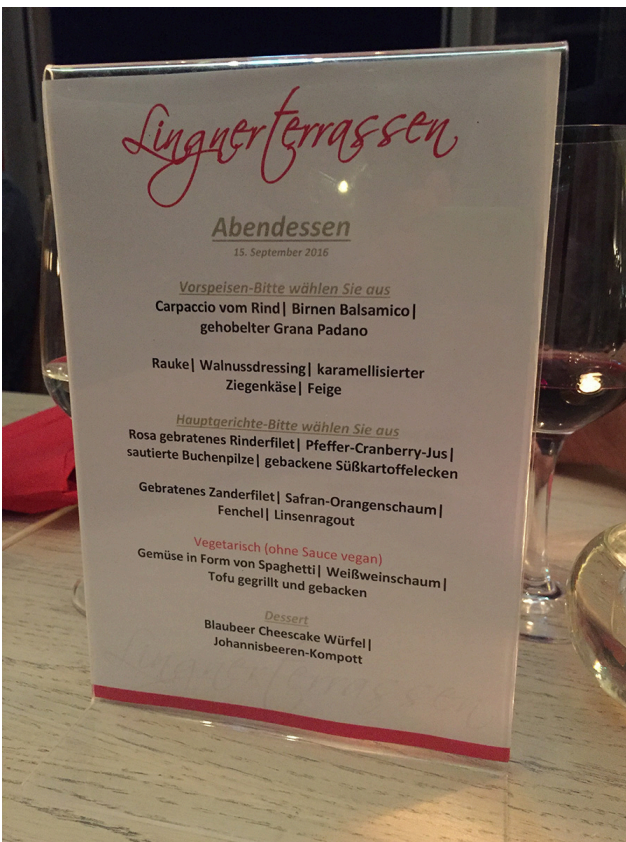 Lingnerterrassen
Abendessen
15. September 2016
Vorspeisen-Bitte wählen Sie aus
Carpaccio vom Rind| Birnen Balsamico|
gehobelter Grana Padano
Rauke| Walnussdressing| karamellisierter
Ziegenkäse| Feige
Hauptgerichte-Bitte wählen Sie aus
Rosa gebratenes Rinderfilet| Pfeffer-Cranberry-Jus|
sautierte Buchenpilze| gebackene Süßkartoffelecken
Gebratenes Zanderfilet| Safran-Orangenschaum|
Fenchel| Linsenragout
Vegetarisch (ohne Sauce vegan)
Gemüse in Form von Spaghetti| Weißweinschaum|
Tofu gegrillt und gebacken
Dessert
Blaubeer Cheescake Würfel|
Johannisbeeren-Kompott
Lingnerterrassen